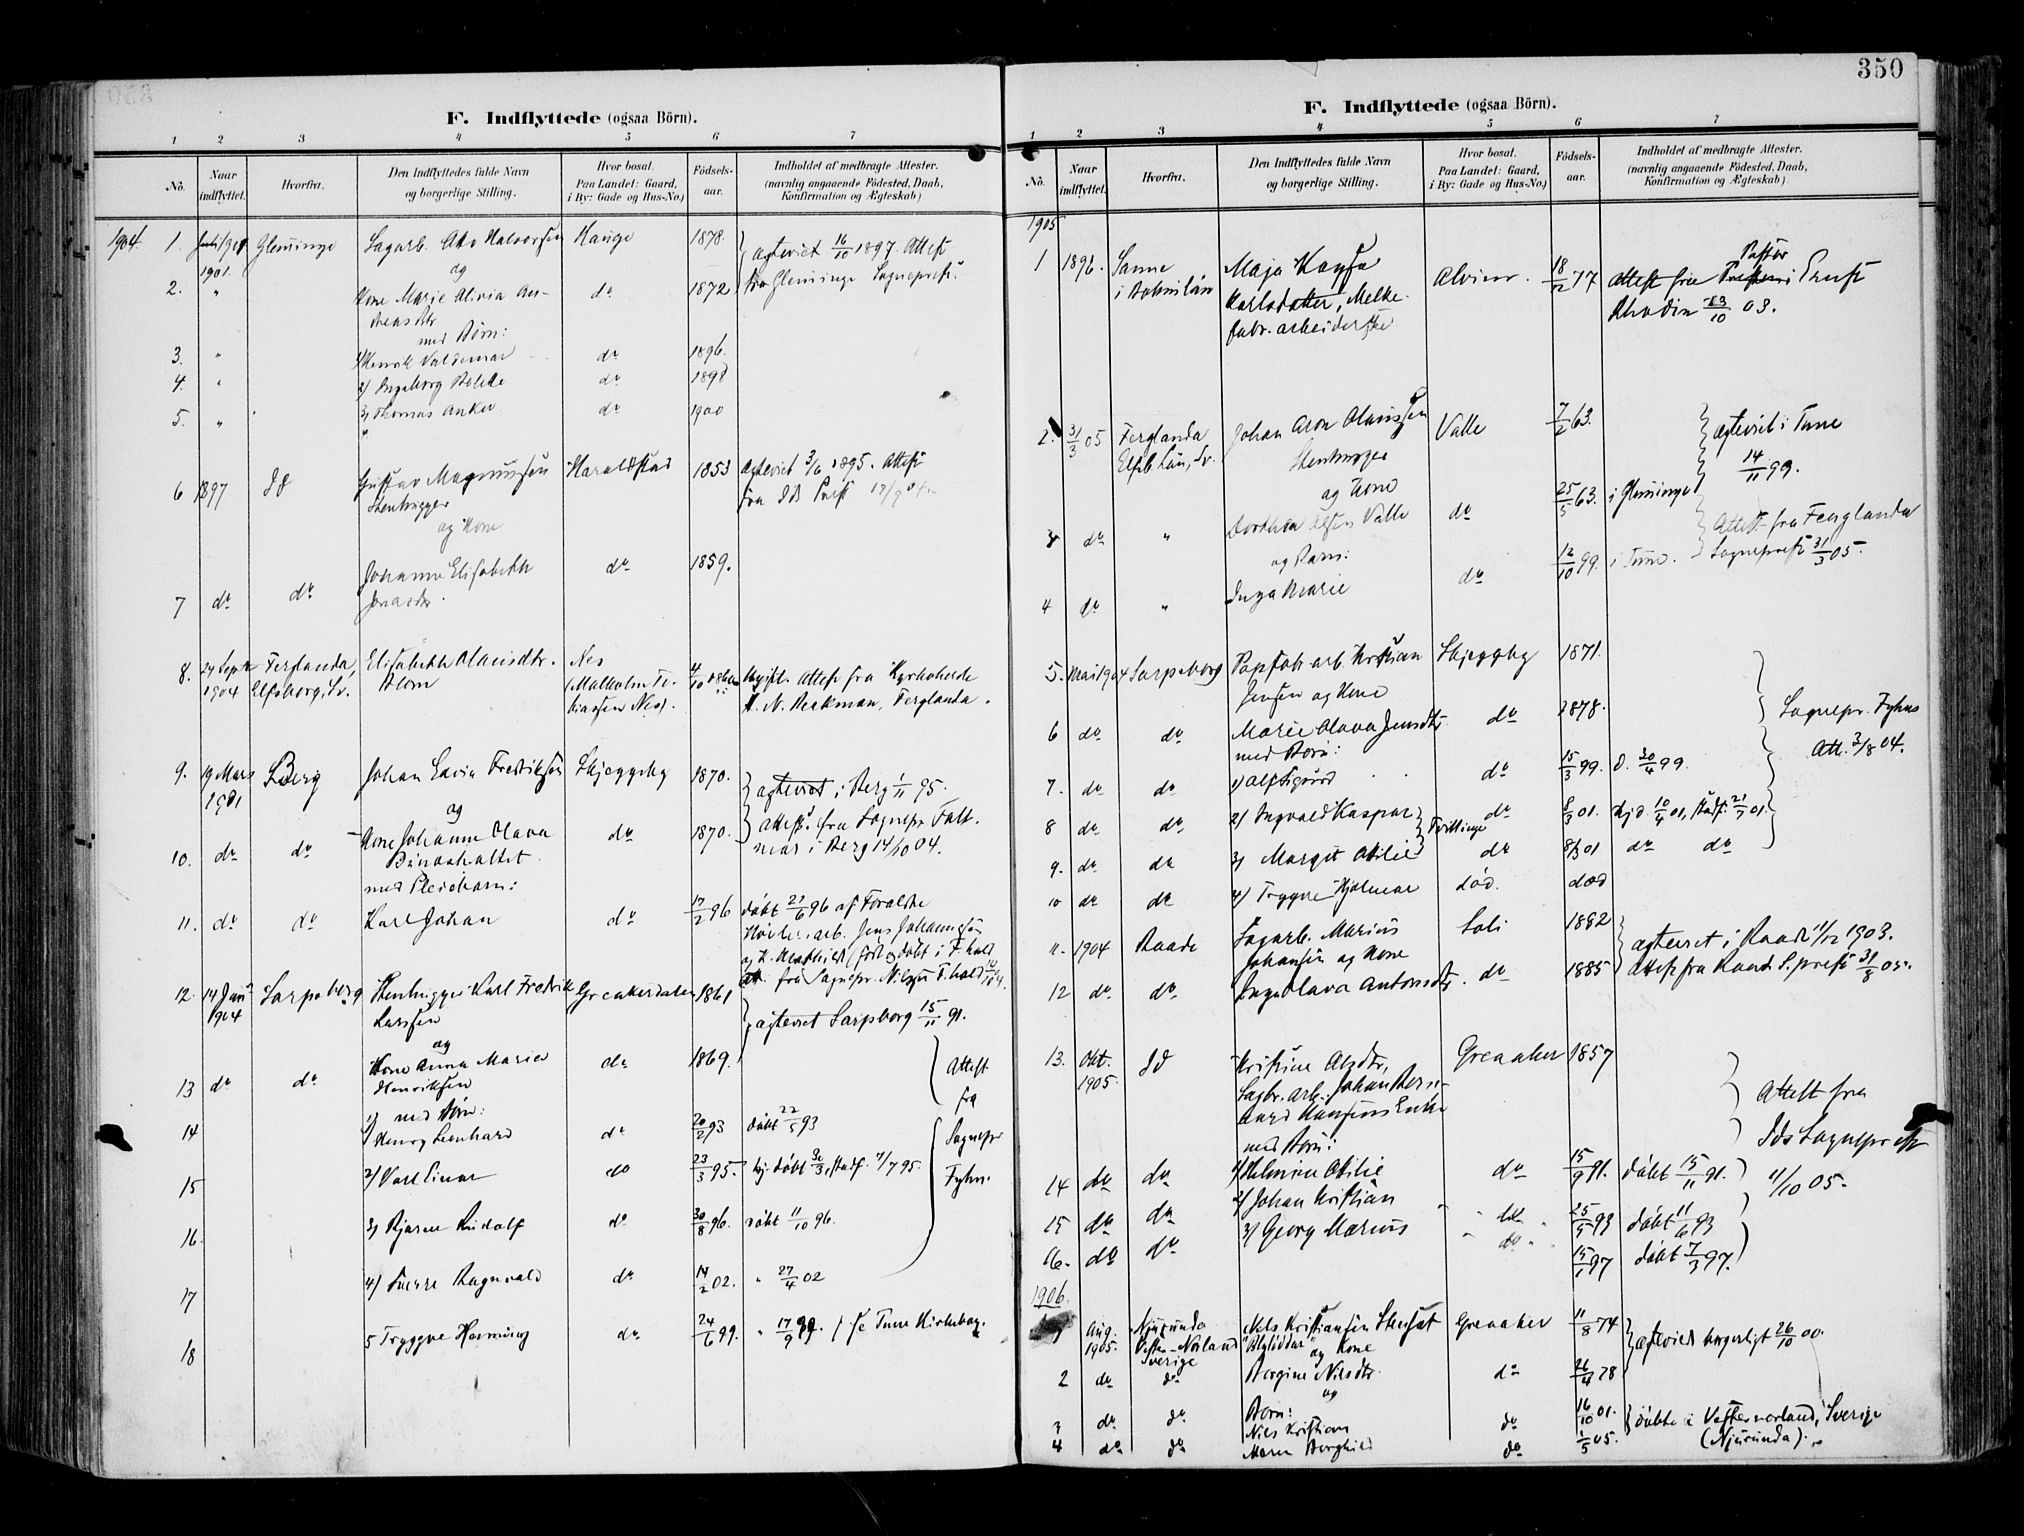 350
F. Indflyttede (ogsaa Börn).
1 2 3 4 5 6 7
No.
Naar indflyttet.
Hvorfra.
Den Indflyttedes fulde Navn og borgerlige Stilling.
Hvor bosat. Paa Landet: Gaard, i By: Gade og Hus-No.)
Födsels-aar.
Indholdet af medbragte Attester. (navnlig angaaende Födested, Daab, Konfirmation og Ægteskab)
1904. 1. 1901 Glemminge Sagarb. Halvorsen Hauge 1878. Ægteviet 16/10 1897. Attest
og fra Glemminge Sognepræst.
2. " Kone Marie Olivia An- do 1872
dreas Dtr.
med Börn:
3. " 1) Henrik Valdemar do 1896.
4. " 2) Ingeborg do 1898
5. " 3) Thomas Anker do 1900
6 1897 Id Gustav Magnussen Haraldstad 1853 Ægteviet 3/6 1895. Attest
Stenhugger fra Ids Præst
og Kone
7 do do Johanne Elisabeth do 1859.
Jonasdtr.
8. 24 Septr 1904 Ferglanda, Elfsborg, Sv. Elisabeth Olausdtr. Nes 4/10 Ugift. Attest fra Kyrkoherde
Blom N. Beckman, Ferglanda.
9. 19 Mars 1901 Berg Johan Fredriksen Skjeggeby 1870. ægteviet i Berg 1/11 95.
og Attest fra Sognepr. Falt-
10. do do Kone Johanne Olava do 1870. mar i Berg 14/10 04.
med Pleiebarn:
11. do do Karl Johan do 17/2 96 döbt 21/6 96 af Forældre
arb. Jens Johannesen
12. 14 Juni 1904 Sarpsborg Stenhugger Karl Fredrik Greakerdalen 1861
Larssen ægteviet Sarpsborg 15/11 91.
og
13 do do Kone Anna Marie do 1869. Attest
Henriksen fra
med Börn: Sognepr
14 1) Henry Leonhard do 20/2 93 döbt 22/5 93 Fyhn.
15 2) Karl Einar do 23/3 95. hj. döbt 30/3, stadf. 7/7 95.
16. 3) Bjarne Rudolf do 30/8 96. döbt 11/10 96.
17 4) Sverre Ragnvald do 14/2 02. " 27/4 02
18 5 Tryggve Henning do 24/6 99. " 17/9 99. / se Tune Kirkebog.
F. Indflyttede (ogsaa Börn).
1 2 3 4 5 6 7
No.
Naar indflyttet.
Hvorfra.
Den Indflyttedes fulde Navn og borgerlige Stilling.
Hvor bosat. Paa Landet: Gaard, i By: Gade og Hus-No.)
Födsels-aar.
Indholdet af medbragte Attester. (navnlig angaaende Födested, Daab, Konfirmation og Ægteskab)
1905
1 1896. Sanne Maja Kajsa Alvim. 18/12 77 Attest fra Pastor Ernst
i Bohuslän Karlsdatter, Rhodin 13/10 03.
fabr. arbeiderske
2. 31/3 05 Ferglanda Johan Aron Olaussen Valle 7/2 63. ægteviet i Tune
Elfsb. Län, Sv. Stenhugger 14/11 99.
og Kone
3 do " Dorthea Olsen Valle do 25/5 63. i Glemminge Attest fra Ferglanda
og Barn: Sognepræst 31/3 05.
4 do " Inga Marie do 12/10 99. i Tune.
5. Mai 1904 Sarpsborg Papfabr. arb. Kristian Skjeggeby 1871.
Jensen og Kone
6 do do Marie Olava Jensdtr. do 1878. Sognepr. Fyhns
med Börn: Att. 3/8 04.
7. do do 1) Alf Sigurd do 15/3 99. d. 30/4 99.
8 do do 2) Ingvald Kaspar Tvillinge do 8/3 01. Hjd. 10/4 01, stadf. 21/7 01.
9. do do 3) Margit Otilie do 8/3 01 do do
10 do do 4) Trygve Hjalmar död. död
11. 1904 Raade Sagarb. Marius Soli 1882 ægteviet i Raade 11/12 1903.
Johansen og Kone Attest fra Raade S.præst 31/8 05.
12 do. do. Inga Olava Antonsdtr. do 1885
13. Okt. 1905. Id Kristine Olsdtr, Greaaker 1857
Sagbr. arb. Johan Bern- Attest fra
hard Hansens Enke Ids Sognepræst
med Börn: 11/10 05.
14 do do 1) Helmine Otilie do 15/9 91. döbt 15/11 91.
15 do do 2) Johan Kristian do 25/5 93 döbt 11/6 93
16. do do 3) Georg Marius do 15/1 97 döbt 7/3 97.
1906.
1 Aug. 1905. Njurunda Nils Kristiansen Stensæt Greaaker 11/8 74 ægteviet borgerligt 26/10 00.
Vester-Norland og Kone
Sverige
2 do do Bergine Nilsdtr. do 26/4 78
og
Börn:
3 do do Nils Kristian do 16/10 01. döbte i Vesternorland, Sverige
4 do do Maren Borghild do 1/5 05. (Njurunda).